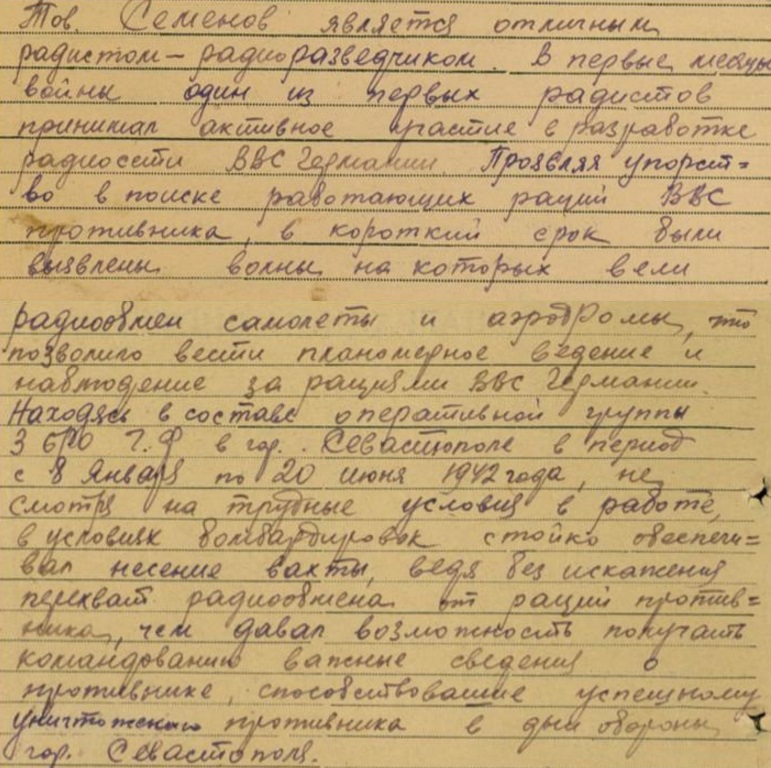 Тов. Семенов является отличным
радистом – радиоразведчиком. В первые месяцы
войны один из первых радистов
принимал активное участие в разработке
радиосети ВВС Германии. Проявляя упорст=
во в поиске работающих раций ВВС
противника, в короткий срок были
выявлены волны на которых вели
радиообмен самолеты и аэродромы, что
позволило вести планомерное ведение и
наблюдение за рациями ВВС Германии.
Находясь в составе оперативной группы
3 БРО Ч.Ф в гор. Севастополе в период
с 8 Января по 20 июня 1942 года, не
смотря на трудные условия в работе,
в условиях бомбардировок стойко обеспечи=
вал несение вахты, ведя без искажения
перехват радиообмена от раций против=
ника, чем давал возможность получать
командованию важные сведения о
противнике, способствовавшие успешному
уничтожению противника в дни обороны
гор. Севастополя.